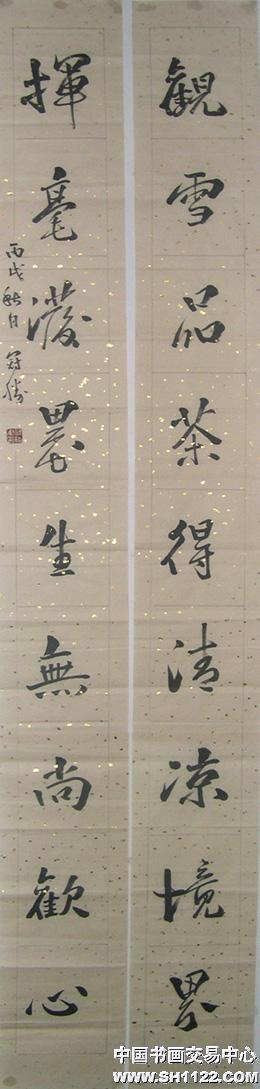 觀雪品茶得清凉境界
揮毫潑墨生無尚歡心
丙戌秋日
中国书画交易中心
WWW.SH1122.COM